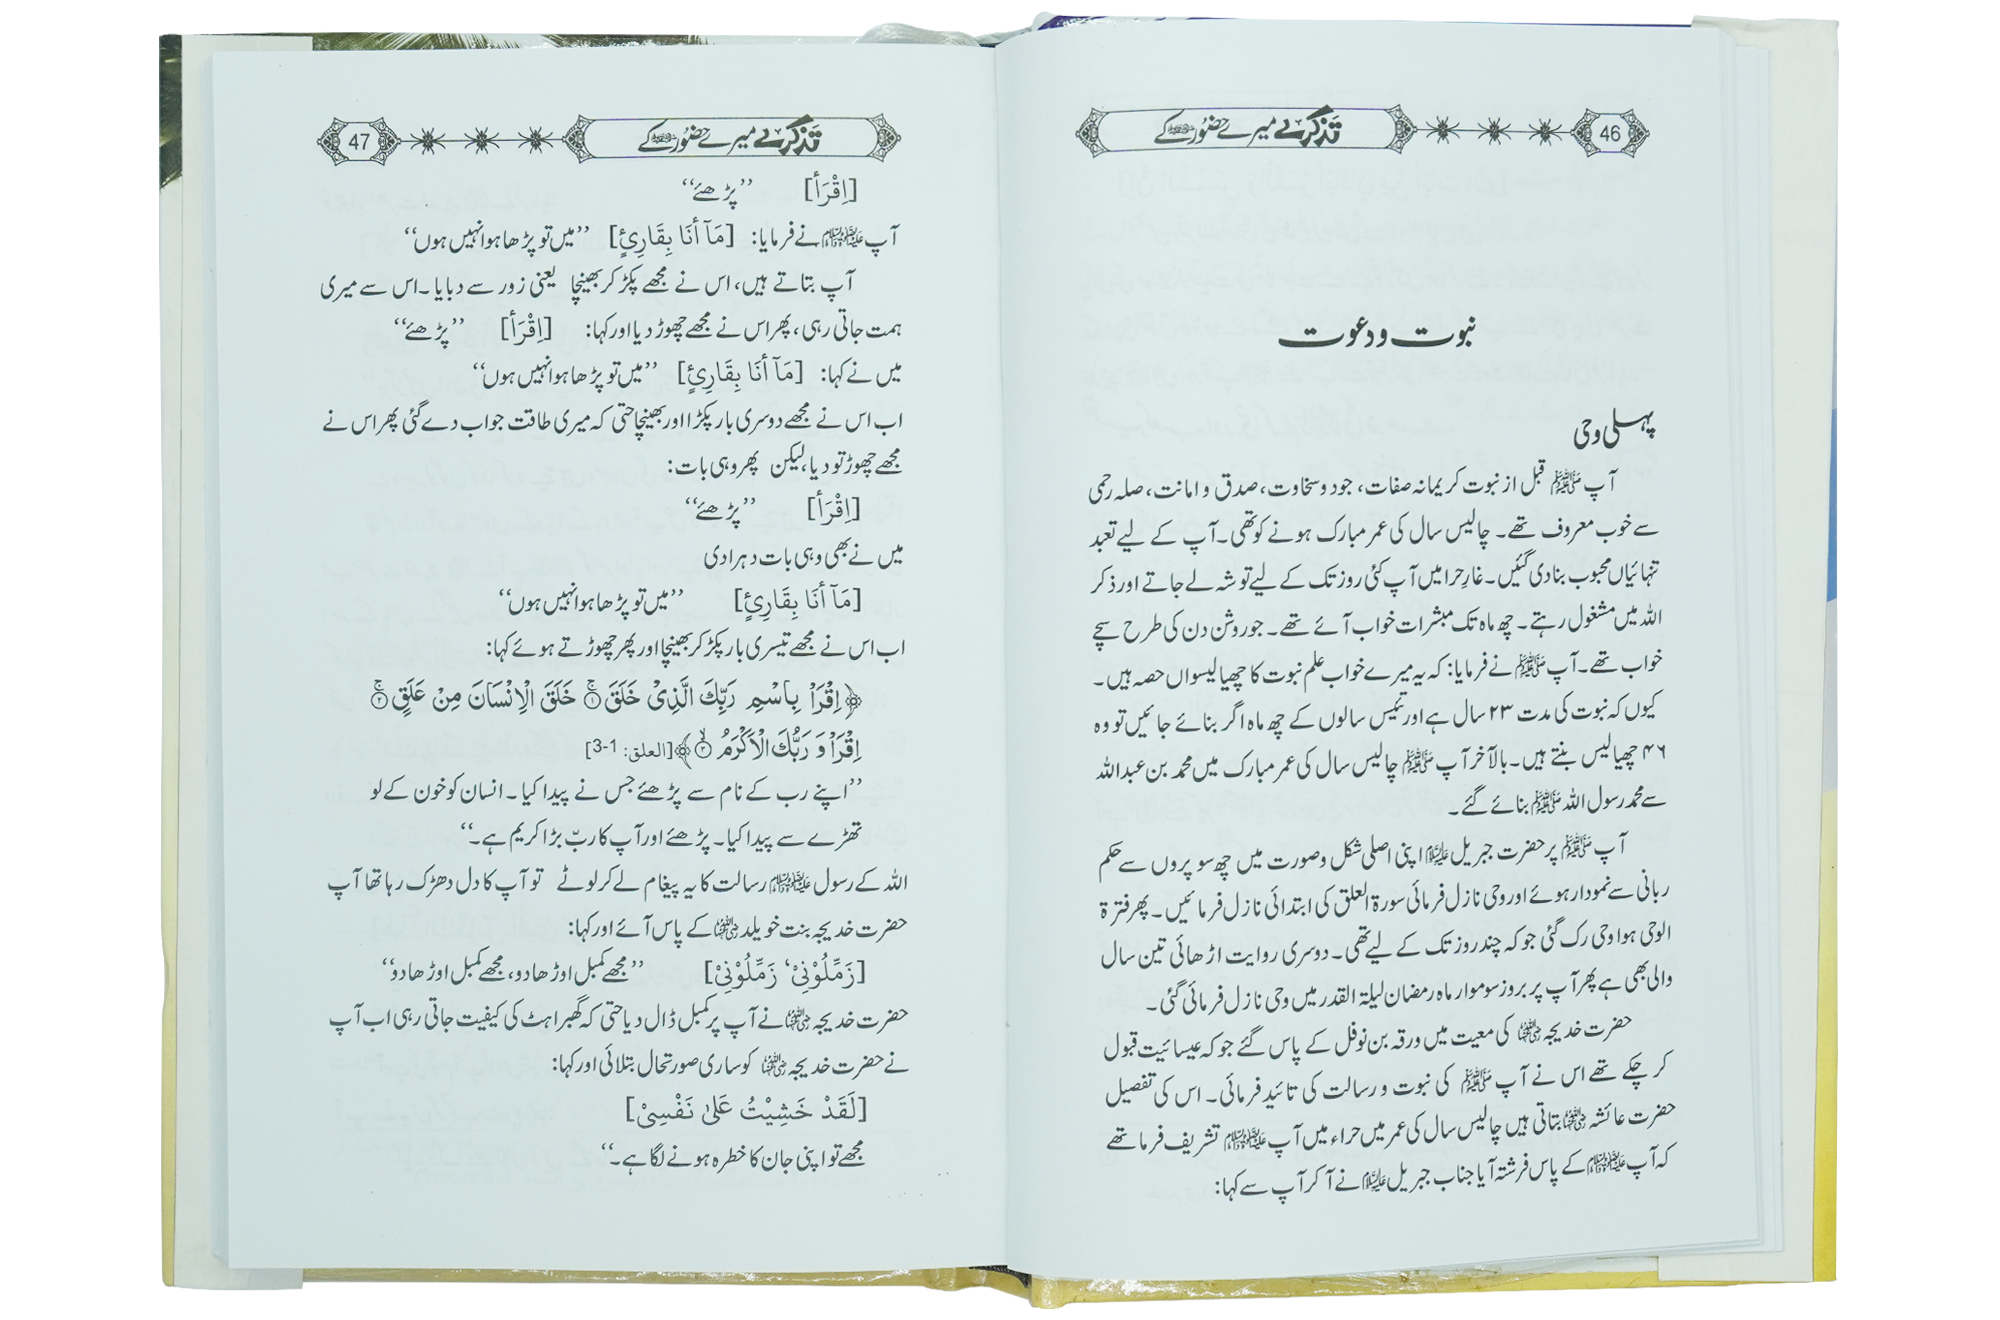 46
تذکرے میرے حضور ﷺ کے
نبوت و دعوت
پہلی وحی
آپ ﷺ قبل از نبوت کریمانہ صفات، جود و سخاوت، صدق و امانت، صلہ رحمی
سے خوب معروف تھے۔ چالیس سال کی عمر مبارک ہونے کو تھی۔ آپ کے لیے تعبد
تنہائیاں محبوب بنادی گئیں۔ غارِ حرا میں آپ کئی روز تک کے لیے توشہ لے جاتے اور ذکر
اللہ میں مشغول رہتے۔ چھ ماہ تک مبشرات خواب آئے تھے۔ جو روشن دن کی طرح سچے
خواب تھے۔ آپ ﷺ نے فرمایا: کہ یہ میرے خواب علم نبوت کا چھیالیسواں حصہ ہیں۔
کیوں کہ نبوت کی مدت ۲۳ سال ہے اور تئیس سالوں کے چھ ماہ اگر بنائے جائیں تو وہ
۴۶ چھیالیس بنتے ہیں۔ بالآخر آپ ﷺ چالیس سال کی عمر مبارک میں محمد بن عبداللہ
سے محمد رسول اللہ ﷺ بنائے گئے۔
آپ ﷺ پر حضرت جبریل علیہ السلام اپنی اصلی شکل و صورت میں چھ سو پروں سے حکم
ربانی سے نمودار ہوئے اور وحی نازل فرمائی سورۃ العلق کی ابتدائی نازل فرمائیں۔ پھر فترۃ
الوحی ہوا وحی رک گئی جو کہ چند روز تک کے لیے تھی۔ دوسری روایت اڑھائی تین سال
والی بھی ہے پھر آپ پر بروز سوموار ماہ رمضان لیلۃ القدر میں وحی نازل فرمائی گئی۔
حضرت خدیجہ رضی اللہ عنہا کی معیت میں ورقہ بن نوفل کے پاس گئے جو کہ عیسائیت قبول
کر چکے تھے اس نے آپ ﷺ کی نبوت و رسالت کی تائید فرمائی۔ اس کی تفصیل
حضرت عائشہ رضی اللہ عنہا بتاتی ہیں چالیس سال کی عمر میں حراء میں آپ ﷺ تشریف فرما تھے
کہ آپ ﷺ کے پاس فرشتہ آیا جناب جبریل علیہ السلام نے آ کر آپ سے کہا:
47
تذکرے میرے حضور ﷺ کے
[اِقْرَأْ] ’’پڑھئے‘‘
آپ ﷺ نے فرمایا: [مَآ أَنَا بِقَارِئٍ] ’’میں تو پڑھا ہوا نہیں ہوں‘‘
آپ بتاتے ہیں، اس نے مجھے پکڑ کر بھینچا یعنی زور سے دبایا۔ اس سے میری
ہمت جاتی رہی، پھر اس نے مجھے چھوڑ دیا اور کہا: [اِقْرَأْ] ’’پڑھئے‘‘
میں نے کہا: [مَآ أَنَا بِقَارِئٍ] ’’میں تو پڑھا ہوا نہیں ہوں‘‘
اب اس نے مجھے دوسری بار پکڑا اور بھینچا حتی کہ میری طاقت جواب دے گئی پھر اس نے
مجھے چھوڑ تو دیا، لیکن پھر وہی بات:
[اِقْرَأْ] ’’پڑھئے‘‘
میں نے بھی وہی بات دہرا دی
[مَآ أَنَا بِقَارِئٍ] ’’میں تو پڑھا ہوا نہیں ہوں‘‘
اب اس نے مجھے تیسری بار پکڑ کر بھینچا اور پھر چھوڑتے ہوئے کہا:
﴿اِقْرَاْ بِاسْمِ رَبِّكَ الَّذِیْ خَلَقَ ۝۱ۚ خَلَقَ الْاِنْسَانَ مِنْ عَلَقٍ ۝۲ۚ
اِقْرَاْ وَ رَبُّكَ الْاَكْرَمُ ۝۳ۙ﴾ [العلق: 1-3]
’’اپنے رب کے نام سے پڑھئے جس نے پیدا کیا۔ انسان کو خون کے لو
تھڑے سے پیدا کیا۔ پڑھئے اور آپ کا ربّ بڑا کریم ہے۔‘‘
اللہ کے رسول ﷺ رسالت کا یہ پیغام لے کر لوٹے تو آپ کا دل دھڑک رہا تھا آپ
حضرت خدیجہ بنت خویلد رضی اللہ عنہا کے پاس آئے اور کہا:
[زَمِّلُوْنِیْ، زَمِّلُوْنِیْ] ’’مجھے کمبل اوڑھا دو، مجھے کمبل اوڑھا دو‘‘
حضرت خدیجہ رضی اللہ عنہا نے آپ پر کمبل ڈال دیا حتی کہ گھبراہٹ کی کیفیت جاتی رہی اب آپ
نے حضرت خدیجہ رضی اللہ عنہا کو ساری صورتحال بتلائی اور کہا:
[لَقَدْ خَشِیْتُ عَلیٰ نَفْسِیْ]
مجھے تو اپنی جان کا خطرہ ہونے لگا ہے۔‘‘